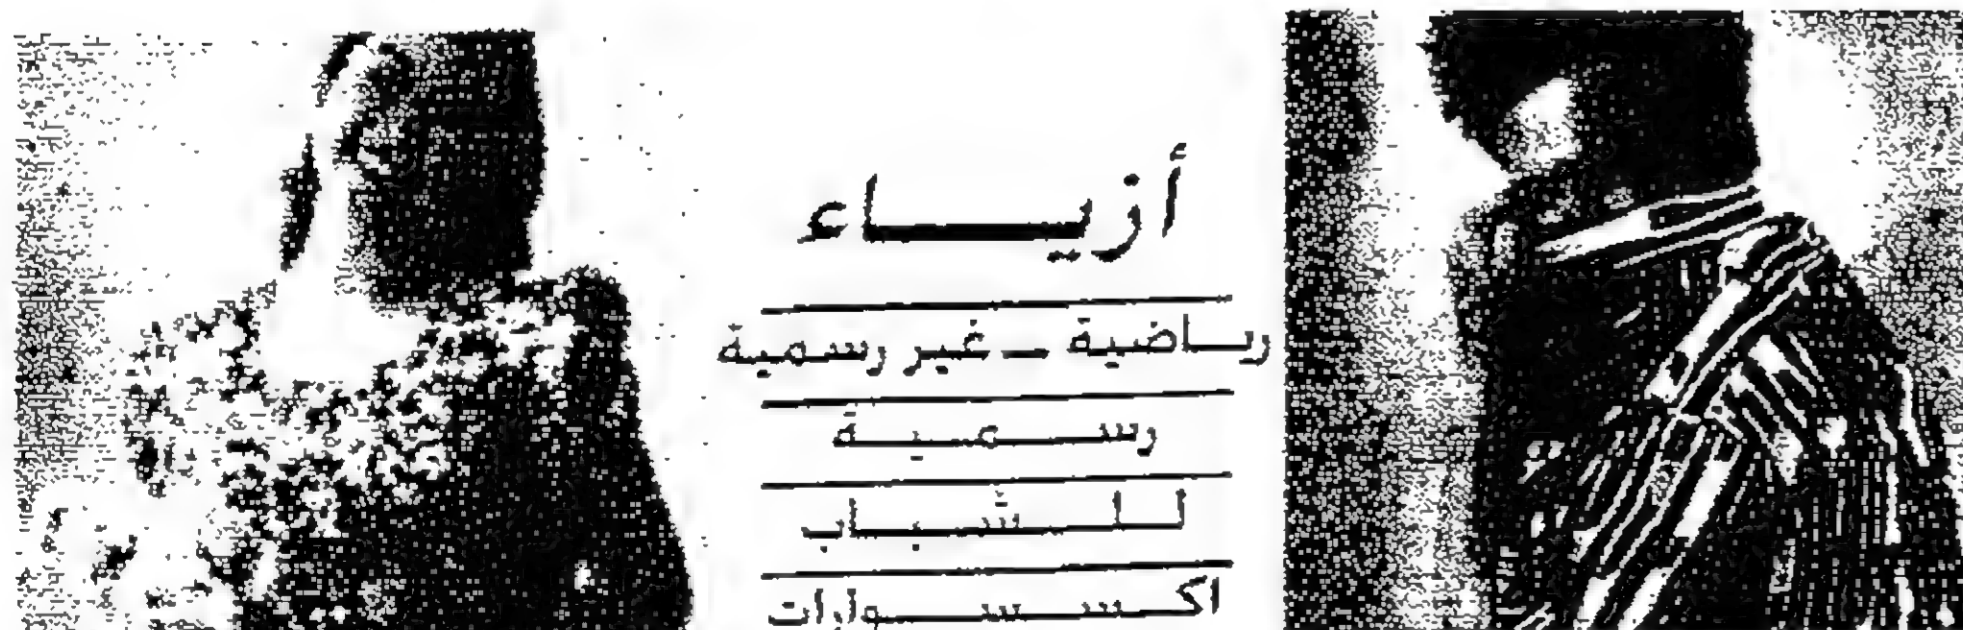 أزياء
رياضية - غير رسمية
رسمية
للشباب
اكسسوارات